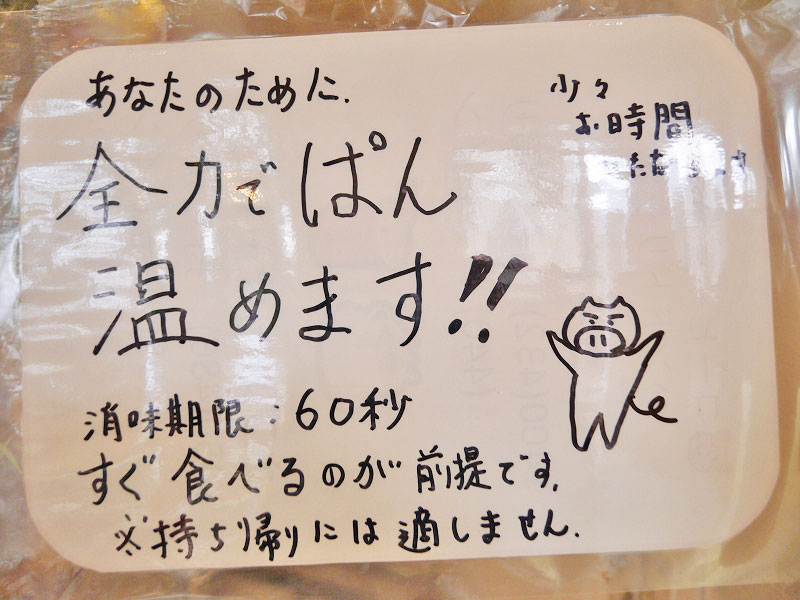 あなたのために.
少々
お時間
いただきます
全力でぱん
温めます!!
消味期限:60秒
すぐ食べるのが前提です.
※持ち帰りには適しません.